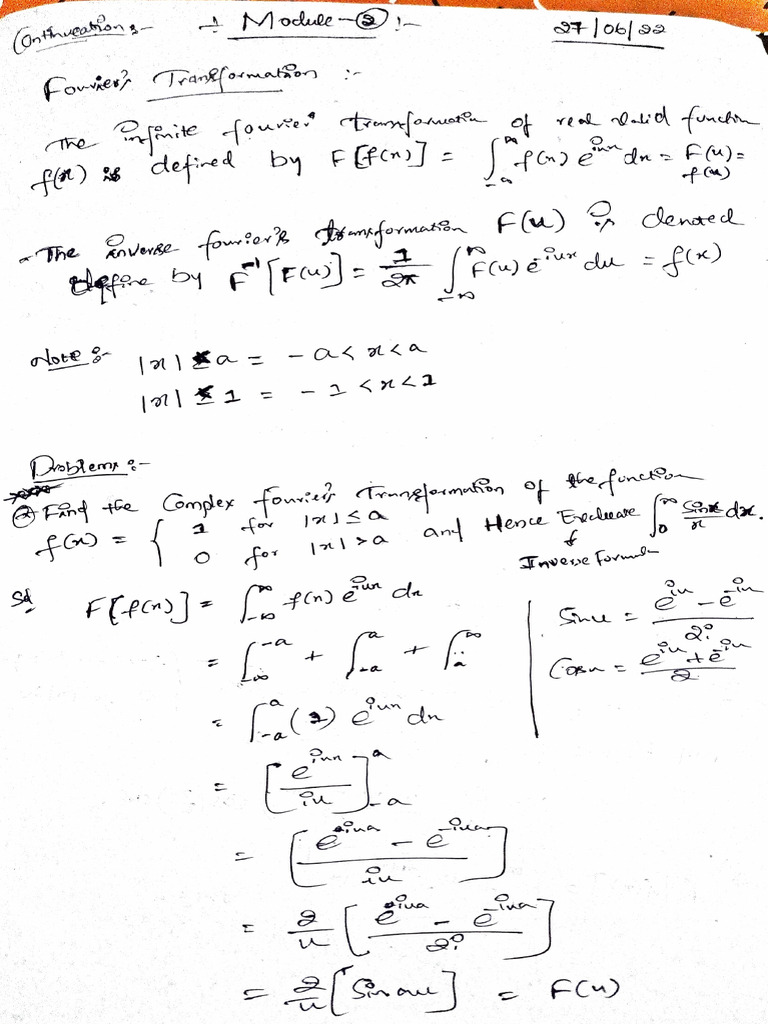 Continuation :- ÷ Module - ② :- 27/06/22
Fourier's Transformation :-
The infinite fourier transformation of real valid function
f(x) is defined by F[f(x)] = ∫_{-∞}^{∞} f(x) e^{iux} dx = F(u) =
f(u)
The inverse fourier's transformation F(u) is denoted
define by F^{-1}[F(u)] = 1/2π ∫_{-∞}^{∞} F(u) e^{-iux} du = f(x)
Note :- |x| ≤ a = - a < x < a
|x| ≤ 1 = - 1 < x < 1
Problems :-
Find the Complex fourier's Transformation of the function
f(x) = { 1 for |x| ≤ a
0 for |x| > a and Hence Evaluate ∫_0^∞ sinx/x dx.
& Inverse Formula
Sol F[f(x)] = ∫_{-∞}^{∞} f(x) e^{iux} dx
= ∫_{-∞}^{-a} + ∫_{-a}^{a} + ∫_{a}^{∞}
= ∫_{-a}^{a} (1) e^{iux} dx
= [e^{iux}/iu]_{-a}^{a}
= [e^{iua} - e^{-iua}/iu]
= 2/u [e^{iua} - e^{-iua}/2i]
= 2/u [Sin au] = F(u)
Sinu = e^{iu} - e^{-iu}/2i
Cosu = e^{iu} + e^{-iu}/2